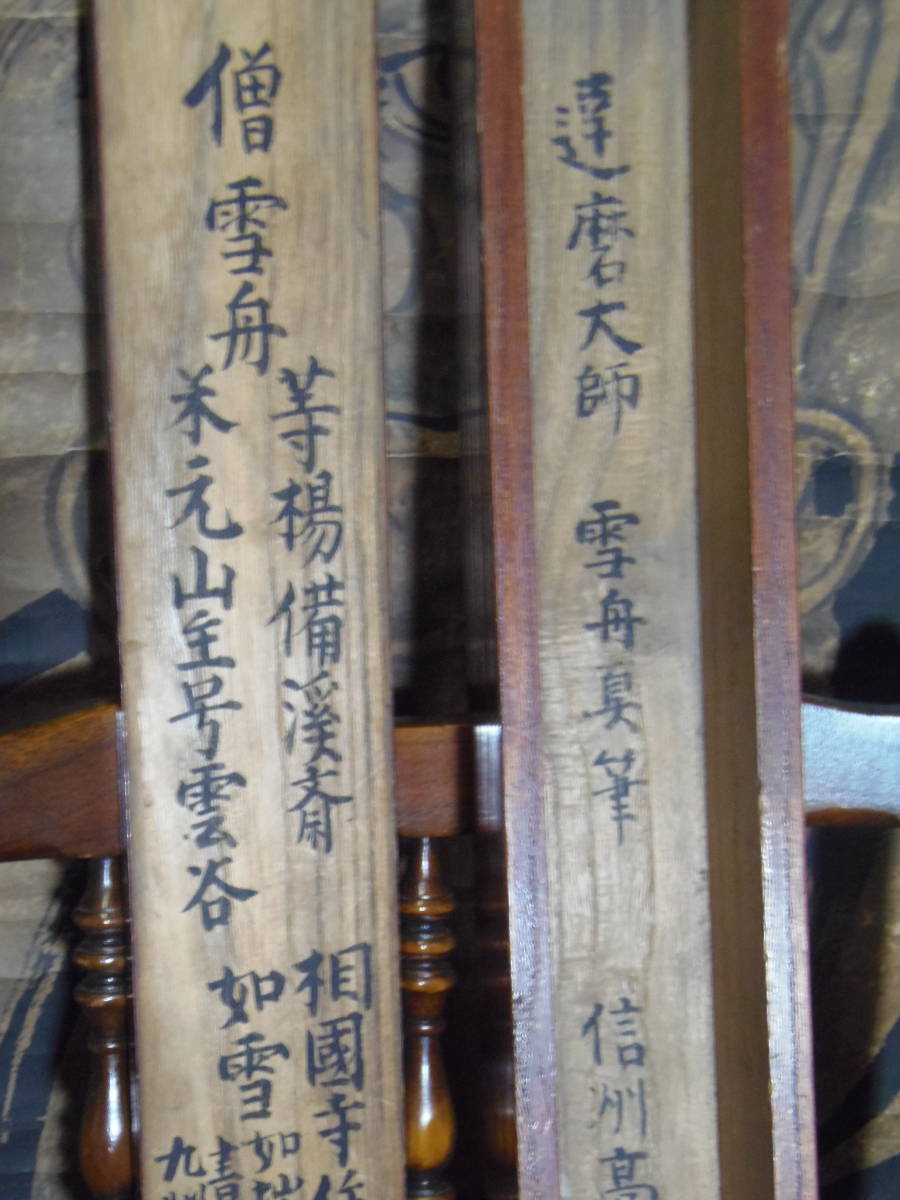 達磨大師 雪舟真筆 信州高
僧雪舟
等楊備溪斎
米元山主号雲谷
相國寺
如雪
如拙
九州